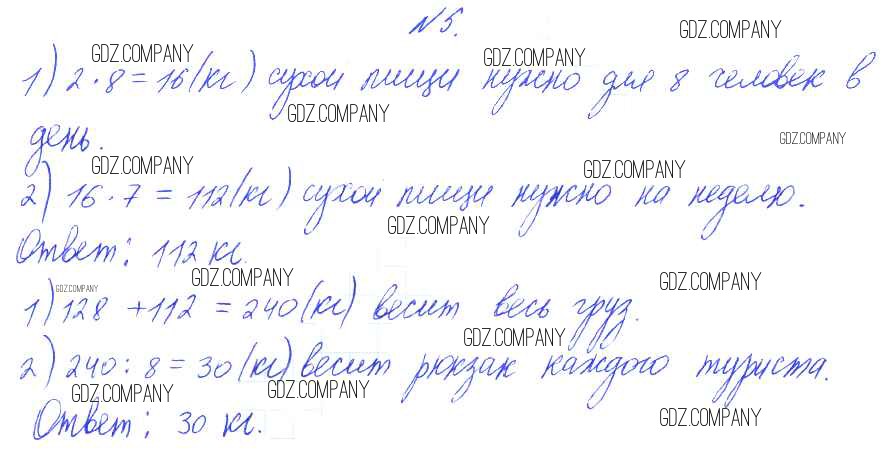 №5.
GDZ.COMPANY
GDZ.COMPANY GDZ.COMPANY
1) 2 · 8 = 16 (кг) сухой пищи нужно для 8 человек в
GDZ.COMPANY
день.
GDZ.COMPANY
GDZ.COMPANY GDZ.COMPANY
2) 16 · 7 = 112 (кг) сухой пищи нужно на неделю.
GDZ.COMPANY
Ответ: 112 кг.
GDZ.COMPANY GDZ.COMPANY GDZ.COMPANY
1) 128 + 112 = 240 (кг) весит весь груз.
GDZ.COMPANY
2) 240 : 8 = 30 (кг) весит рюкзак каждого туриста.
GDZ.COMPANY GDZ.COMPANY
Ответ: 30 кг.
GDZ.COMPANY